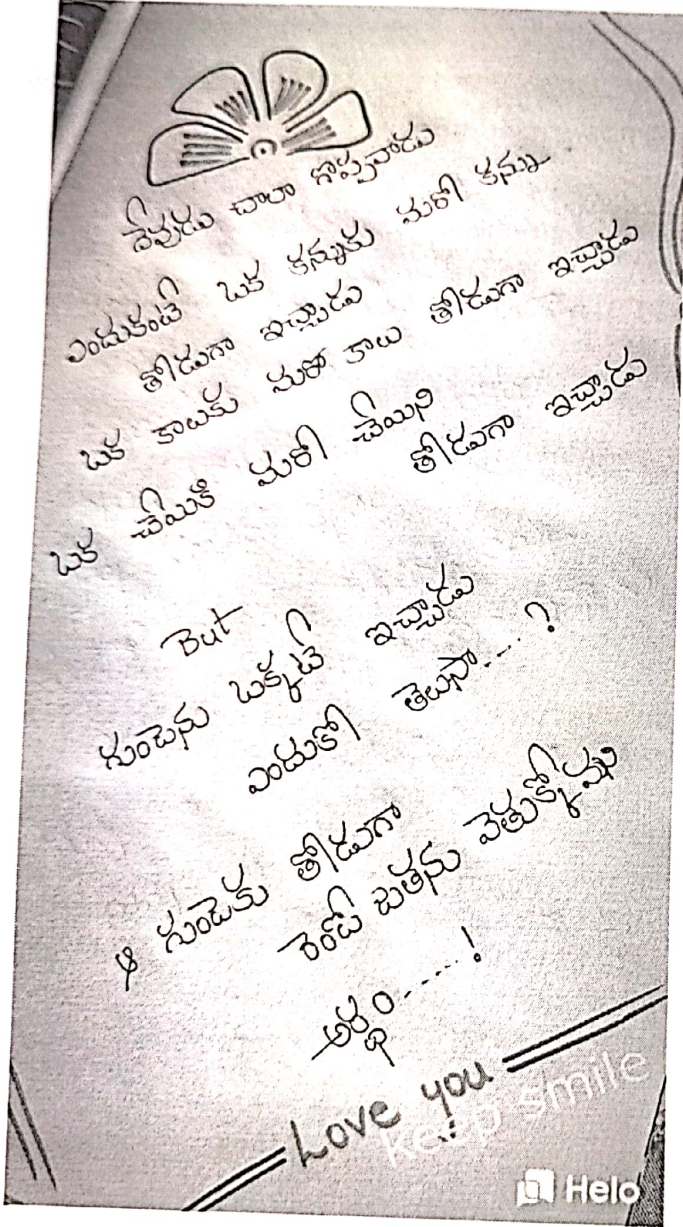 దేవుడు చాలా గొప్పవాడు
ఎందుకంటే ఒక కన్నుకు మరో కన్ను
తోడుగా ఇచ్చాడు
ఒక కాలుకు మరో కాలు తోడుగా ఇచ్చాడు
ఒక చేయికి మరో చేయిని
తోడుగా ఇచ్చాడు
But
గుండెను ఒక్కటే ఇచ్చాడు
ఎందుకో తెలుసా....?
ఆ గుండెకు తోడుగా
రెండో జతను వెతుక్కోమని
అర్థం.....!
Love you
keep smile
Helo